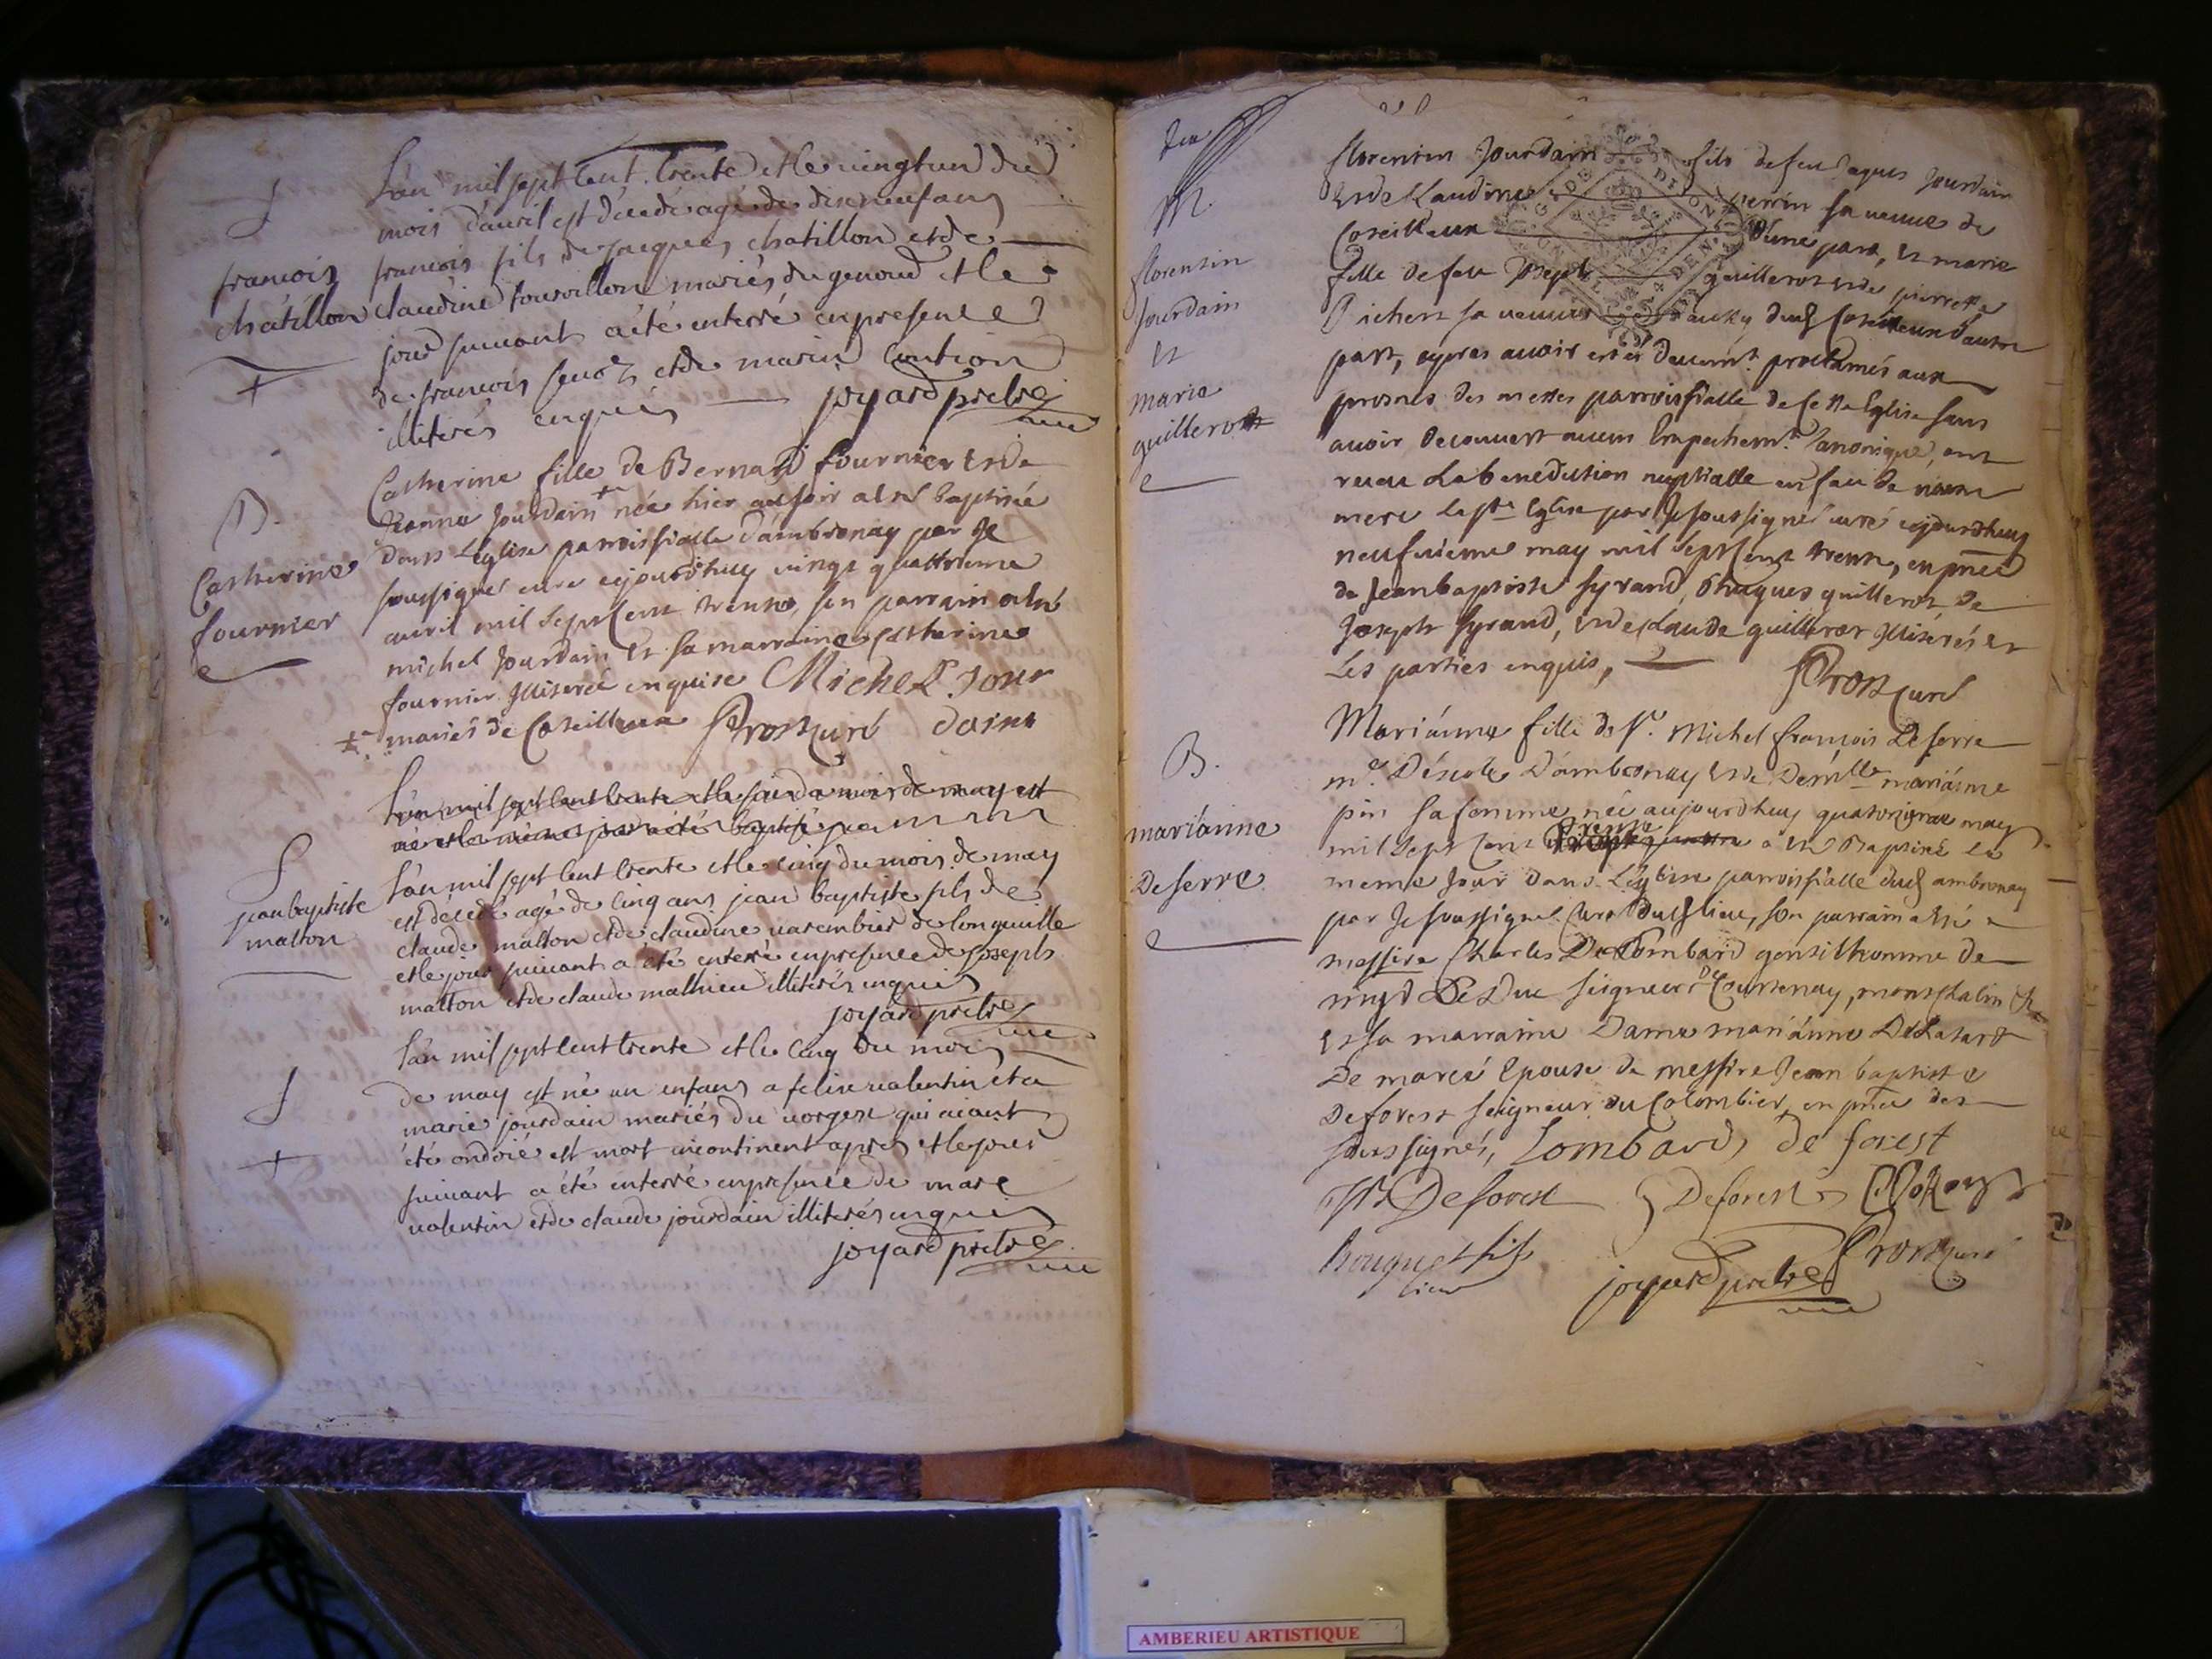 S
françois
chatillon
+
L'an mil sept cent trente et le vingt un du
mois d'avril est décédé agé de dix neuf ans
françois fils de Jacques chatillon et de
claudine tourvillon mariés du genoud et le
jour suivant a été enterré en presence
de françois et de marin
illiterés enquis joyard pretre
B.
Catherine
fournier
Catherine fille de Bernard fournier et de
Jeanne Jourdain + née hier au soir a esté baptisée
dans L'église parroissialle d'ambronay par Je
soussigné curé aujourdhuy vingt quattrieme
auril mil sept cent trente, son parrain a esté
michel Jourdain et sa marraine Catherine
fournier Illiterée enquise Michel Jour
+ mariés de Coseilleux curé dains
L'an mil sept cent trente et le six du mois de may est
né et le même jour a été baptisé
S
jean baptiste
malton
L'an mil sept cent trente et le cinq du mois de may
est décédé agé de cinq ans jean baptiste fils de
claude malton et de claudine varembier de longeuille
et le jour suivant a été enterré en presence de joseph
malton et de claude mathieu illiterés enquis
joyard pretre
S
+
L'an mil sept cent trente et le cinq du mois
de may est né un enfant a felix valentin et a
marie jourdain mariés du vorgey qui aiant
été ondoié est mort incontinent apres et le jour
suivant a été enterré en presence de marc
valentin et de claude jourdain illiterés enquis
joyard pretre
M.
florentin
Jourdain
et
marie
guillerot
florentin Jourdain fils de feu Jaques Jourdain
et de Claudine perrin sa veuve de
Coseilleux d'une part, et marie
fille de feu Joseph guillerot et de pierrette
Richert sa veuve dud Coseilleux d'autre
part, apres avoir esté deuemt. proclamés aux
prosnes des messes parroissialle de cette Eglise sans
avoir decouvert aucun Empechemt. Canonique, ont
receu La benediction nuptialle en face de notre
mere la ste Eglise par Je soussigné curé aujourdhuy
neufvieme may mil sept cent trente, en pnce
de Jean baptiste syrand, d'hugues guillerot, de
Joseph syrand, et de claude guillerot Illiterés et
Les parties enquis, curé
B.
marianne
Deserre
Marianne fille de sr. Michel françois Deserre
me. D'écolle D'ambronay et de Demlle marianne
pin sa femme, née aujourdhuy quatorzieme may
mil sept cent trente a esté Baptisée le
meme Jour dans L'église parroissialle dud ambronay
par Je soussigné Curé dud lieu, son parrain a esté
messire Charles De Lombard gentilhomme de
mgr Le Duc seigneur de Courtenay, montchalin
et sa marraine Dame marianne
De marcé Epouse de messire Jean baptiste
Deforest seigneur du Colombier, en pnce des
soussignés, Lombard de forest
Deforest Deforest
bouquet fils joyard pretre curé
AMBERIEU ARTISTIQUE